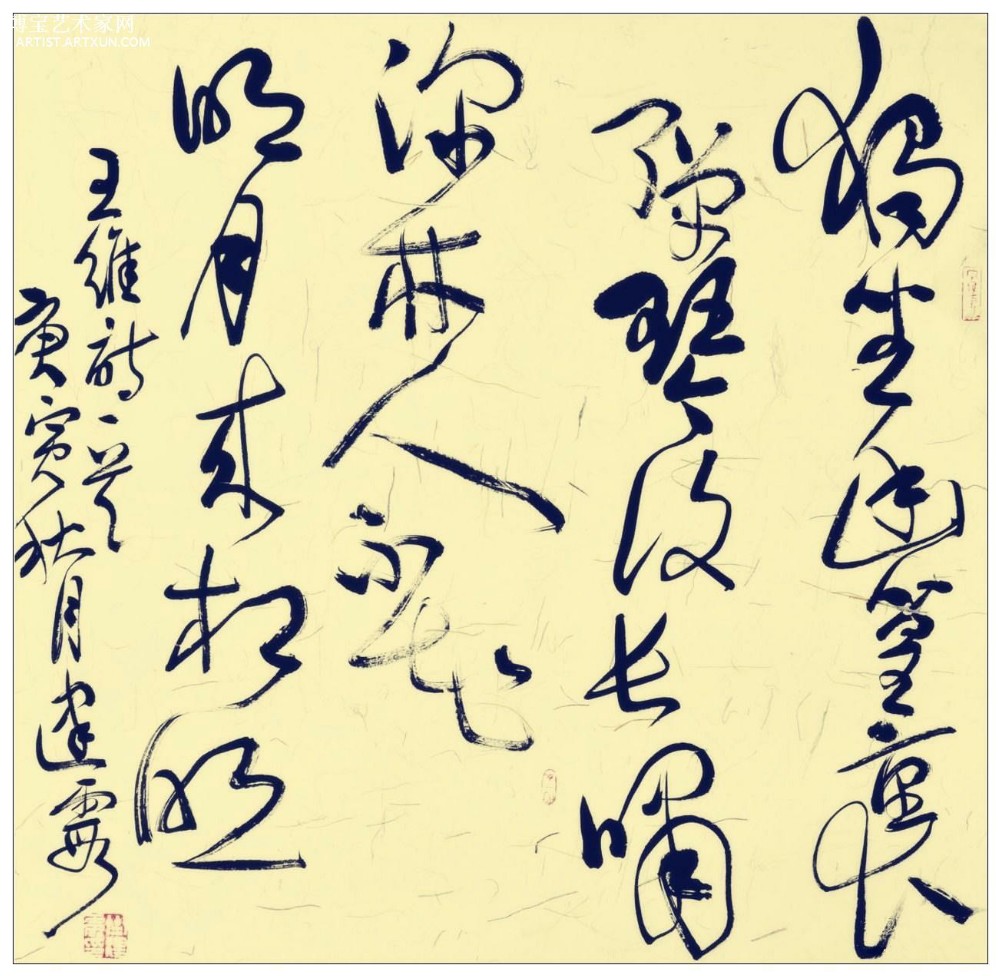 博宝艺术家网
ARTIST.ARTXUN.COM
獨坐幽篁裏
彈琴復长嘯
深林人不知
明月来相照
王維詩一首
庚寅秋月建霞